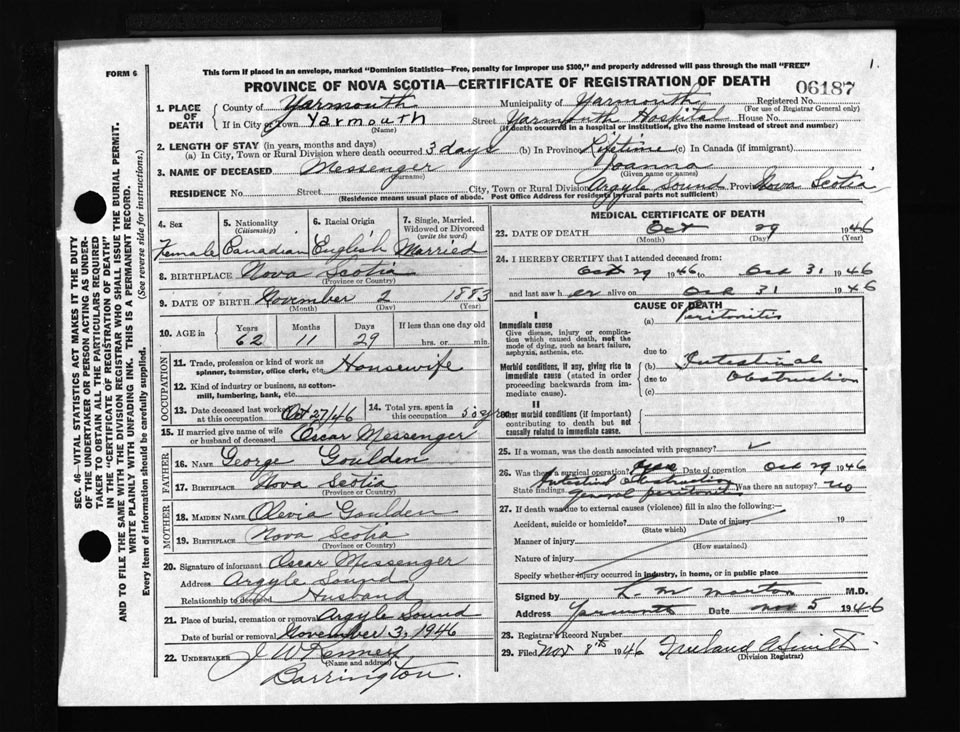 FORM 6
This form if placed in an envelope, marked "Dominion Statistics—Free, penalty for improper use $300," and properly addressed will pass through the mail "FREE"
1.
PROVINCE OF NOVA SCOTIA—CERTIFICATE OF REGISTRATION OF DEATH
06187
1. PLACE OF DEATH County of Yarmouth Municipality of Yarmouth Registered No.
(For use of Registrar General only)
If in City or Town Yarmouth Street Yarmouth Hospital House No.
(Name) (If death occurred in a hospital or institution, give the name instead of street and number)
2. LENGTH OF STAY (in years, months and days)
(a) In City, Town or Rural Division where death occurred 3 days (b) In Province Lifetime (c) In Canada (if immigrant)
3. NAME OF DECEASED Messenger Joanna
(Surname) (Given name or names)
RESIDENCE No. Street City, Town or Rural Division Argyle Sound Province Nova Scotia
(Residence means usual place of abode. Post Office Address for residents in rural parts not sufficient)
SEC. 46—VITAL STATISTICS ACT MAKES IT THE DUTY
OF THE UNDERTAKER OR PERSON ACTING AS UNDER-
TAKER TO OBTAIN ALL THE PARTICULARS REQUIRED
IN THE "CERTIFICATE OF REGISTRATION OF DEATH"
AND TO FILE THE SAME WITH THE DIVISION REGISTRAR WHO SHALL ISSUE THE BURIAL PERMIT.
WRITE PLAINLY WITH UNFADING INK. THIS IS A PERMANENT RECORD.
Every item of information should be carefully supplied. (See reverse side for instructions.)
4. Sex 5. Nationality (Citizenship) 6. Racial Origin 7. Single, Married, Widowed or Divorced (write the word)
Female Canadian English Married
8. BIRTHPLACE Nova Scotia
(Province or Country)
9. DATE OF BIRTH November 2 1883
(Month) (Day) (Year)
10. AGE in Years Months Days If less than one day old
62 11 29 hrs. or min.
OCCUPATION
11. Trade, profession or kind of work as spinner, teamster, office clerk, etc. Housewife
12. Kind of industry or business, as cotton-mill, lumbering, bank, etc.
13. Date deceased last worked at this occupation Oct 27/46 14. Total yrs. spent in this occupation
15. If married give name of wife or husband of deceased Oscar Messenger
FATHER
16. NAME George Goulden
17. BIRTHPLACE Nova Scotia
(Province or Country)
MOTHER
18. MAIDEN NAME Olevia Goulden
19. BIRTHPLACE Nova Scotia
(Province or Country)
20. Signature of informant Oscar Messenger
Address Argyle Sound
Relationship to deceased Husband
21. Place of burial, cremation or removal Argyle Sound
Date of burial or removal November 3, 1946
22. UNDERTAKER J W Kenney
(Name and address)
Barrington.
MEDICAL CERTIFICATE OF DEATH
23. DATE OF DEATH Oct 29 1946
(Month) (Day) (Year)
24. I HEREBY CERTIFY that I attended deceased from:
Oct 29 1946 to Oct 31 1946
and last saw her alive on Oct 31 1946
CAUSE OF DEATH
I
Immediate cause (a) Peritonitis
Give disease, injury or complication which caused death, not the mode of dying, such as heart failure, asphyxia, asthenia, etc.
due to
Morbid conditions, if any, giving rise to immediate cause (stated in order proceeding backwards from immediate cause).
(b) Intestinal
due to Obstruction
(c)
II
Other morbid conditions (if important) contributing to death but not causally related to immediate cause.
25. If a woman, was the death associated with pregnancy? ✓
26. Was there a surgical operation? Yes Date of operation Oct 29 1946
State findings Intestinal obstruction general peritonitis Was there an autopsy? no
27. If death was due to external causes (violence) fill in also the following:—
Accident, suicide or homicide? Date of injury 19
(State which)
Manner of injury
(How sustained)
Nature of injury
Specify whether injury occurred in industry, in home, or in public place
Signed by L. M. Morton M.D.
Address Yarmouth Date Nov 5 1946
28. Registrar's Record Number
29. Filed Nov 8th 1946 Smith
(Division Registrar)